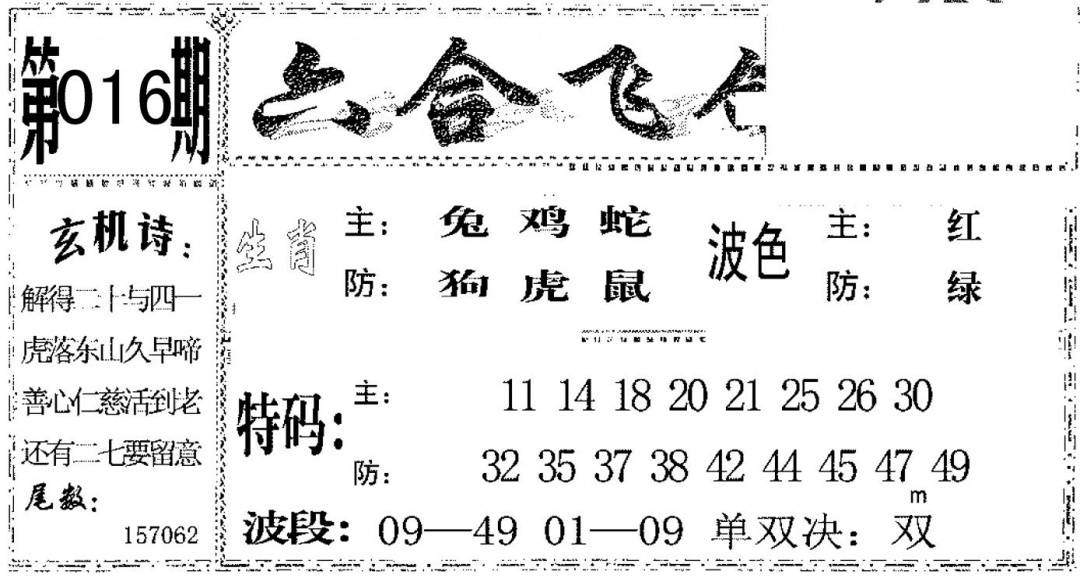 第016期
六合飞
玄机诗：
解得二十与四一
虎落东山久早啼
善心仁慈活到老
还有二七要留意
尾数：
157062
生肖 主： 兔 鸡 蛇
防： 狗 虎 鼠
波色 主： 红
防： 绿
特码： 主： 11 14 18 20 21 25 26 30
防： 32 35 37 38 42 44 45 47 49
m
波段： 09—49 01—09 单双决： 双